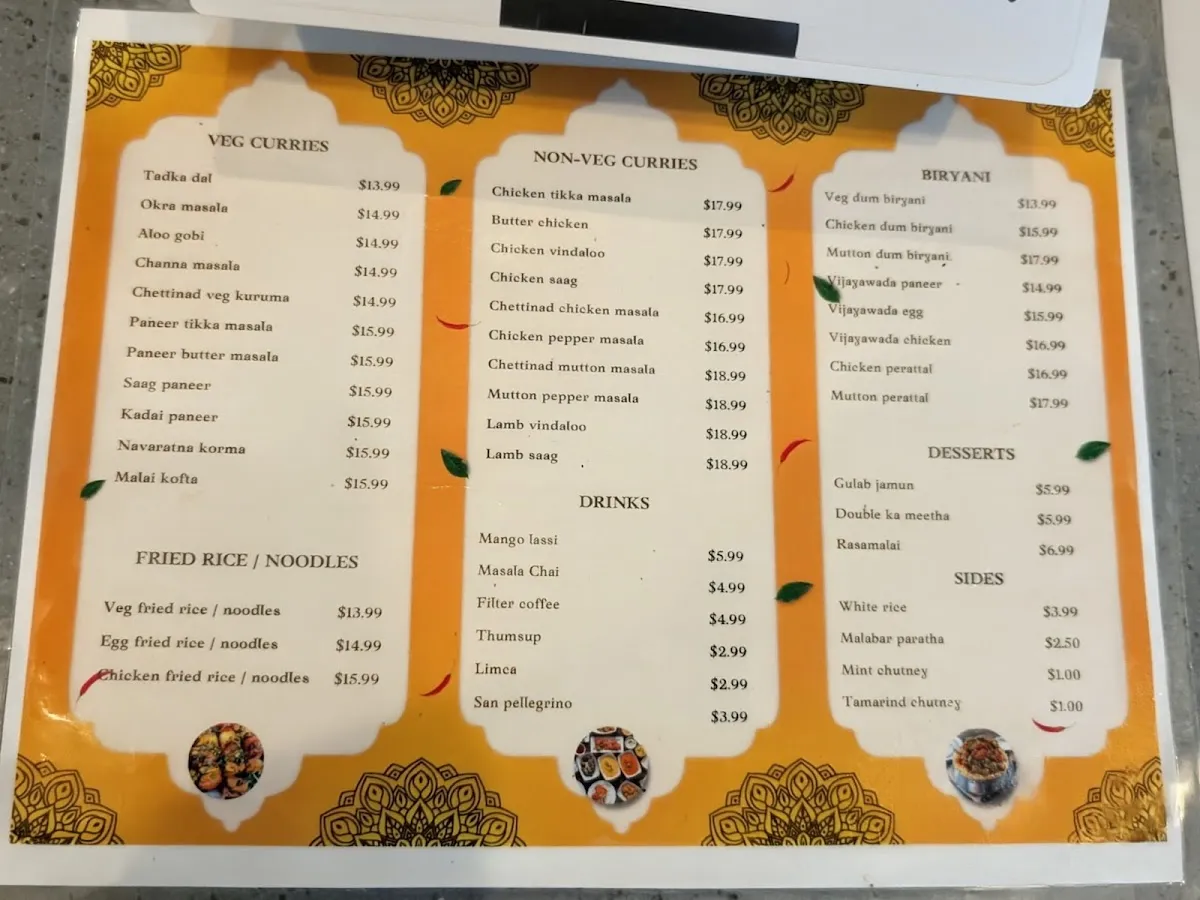 VEG CURRIES
Tadka dal $13.99
Okra masala $14.99
Aloo gobi $14.99
Channa masala $14.99
Chettinad veg kuruma $14.99
Paneer tikka masala $15.99
Paneer butter masala $15.99
Saag paneer $15.99
Kadai paneer $15.99
Navaratna korma $15.99
Malai kofta $15.99
FRIED RICE / NOODLES
Veg fried rice / noodles $13.99
Egg fried rice / noodles $14.99
Chicken fried rice / noodles $15.99
NON-VEG CURRIES
Chicken tikka masala $17.99
Butter chicken $17.99
Chicken vindaloo $17.99
Chicken saag $17.99
Chettinad chicken masala $16.99
Chicken pepper masala $16.99
Chettinad mutton masala $18.99
Mutton pepper masala $18.99
Lamb vindaloo $18.99
Lamb saag $18.99
DRINKS
Mango lassi $5.99
Masala Chai $4.99
Filter coffee $4.99
Thumsup $2.99
Limca $2.99
San pellegrino $3.99
BIRYANI
Veg dum biryani $13.99
Chicken dum biryani $15.99
Mutton dum biryani $17.99
Vijayawada paneer $14.99
Vijayawada egg $15.99
Vijayawada chicken $16.99
Chicken perattal $16.99
Mutton perattal $17.99
DESSERTS
Gulab jamun $5.99
Double ka meetha $5.99
Rasamalai $6.99
SIDES
White rice $3.99
Malabar paratha $2.50
Mint chutney $1.00
Tamarind chutney $1.00